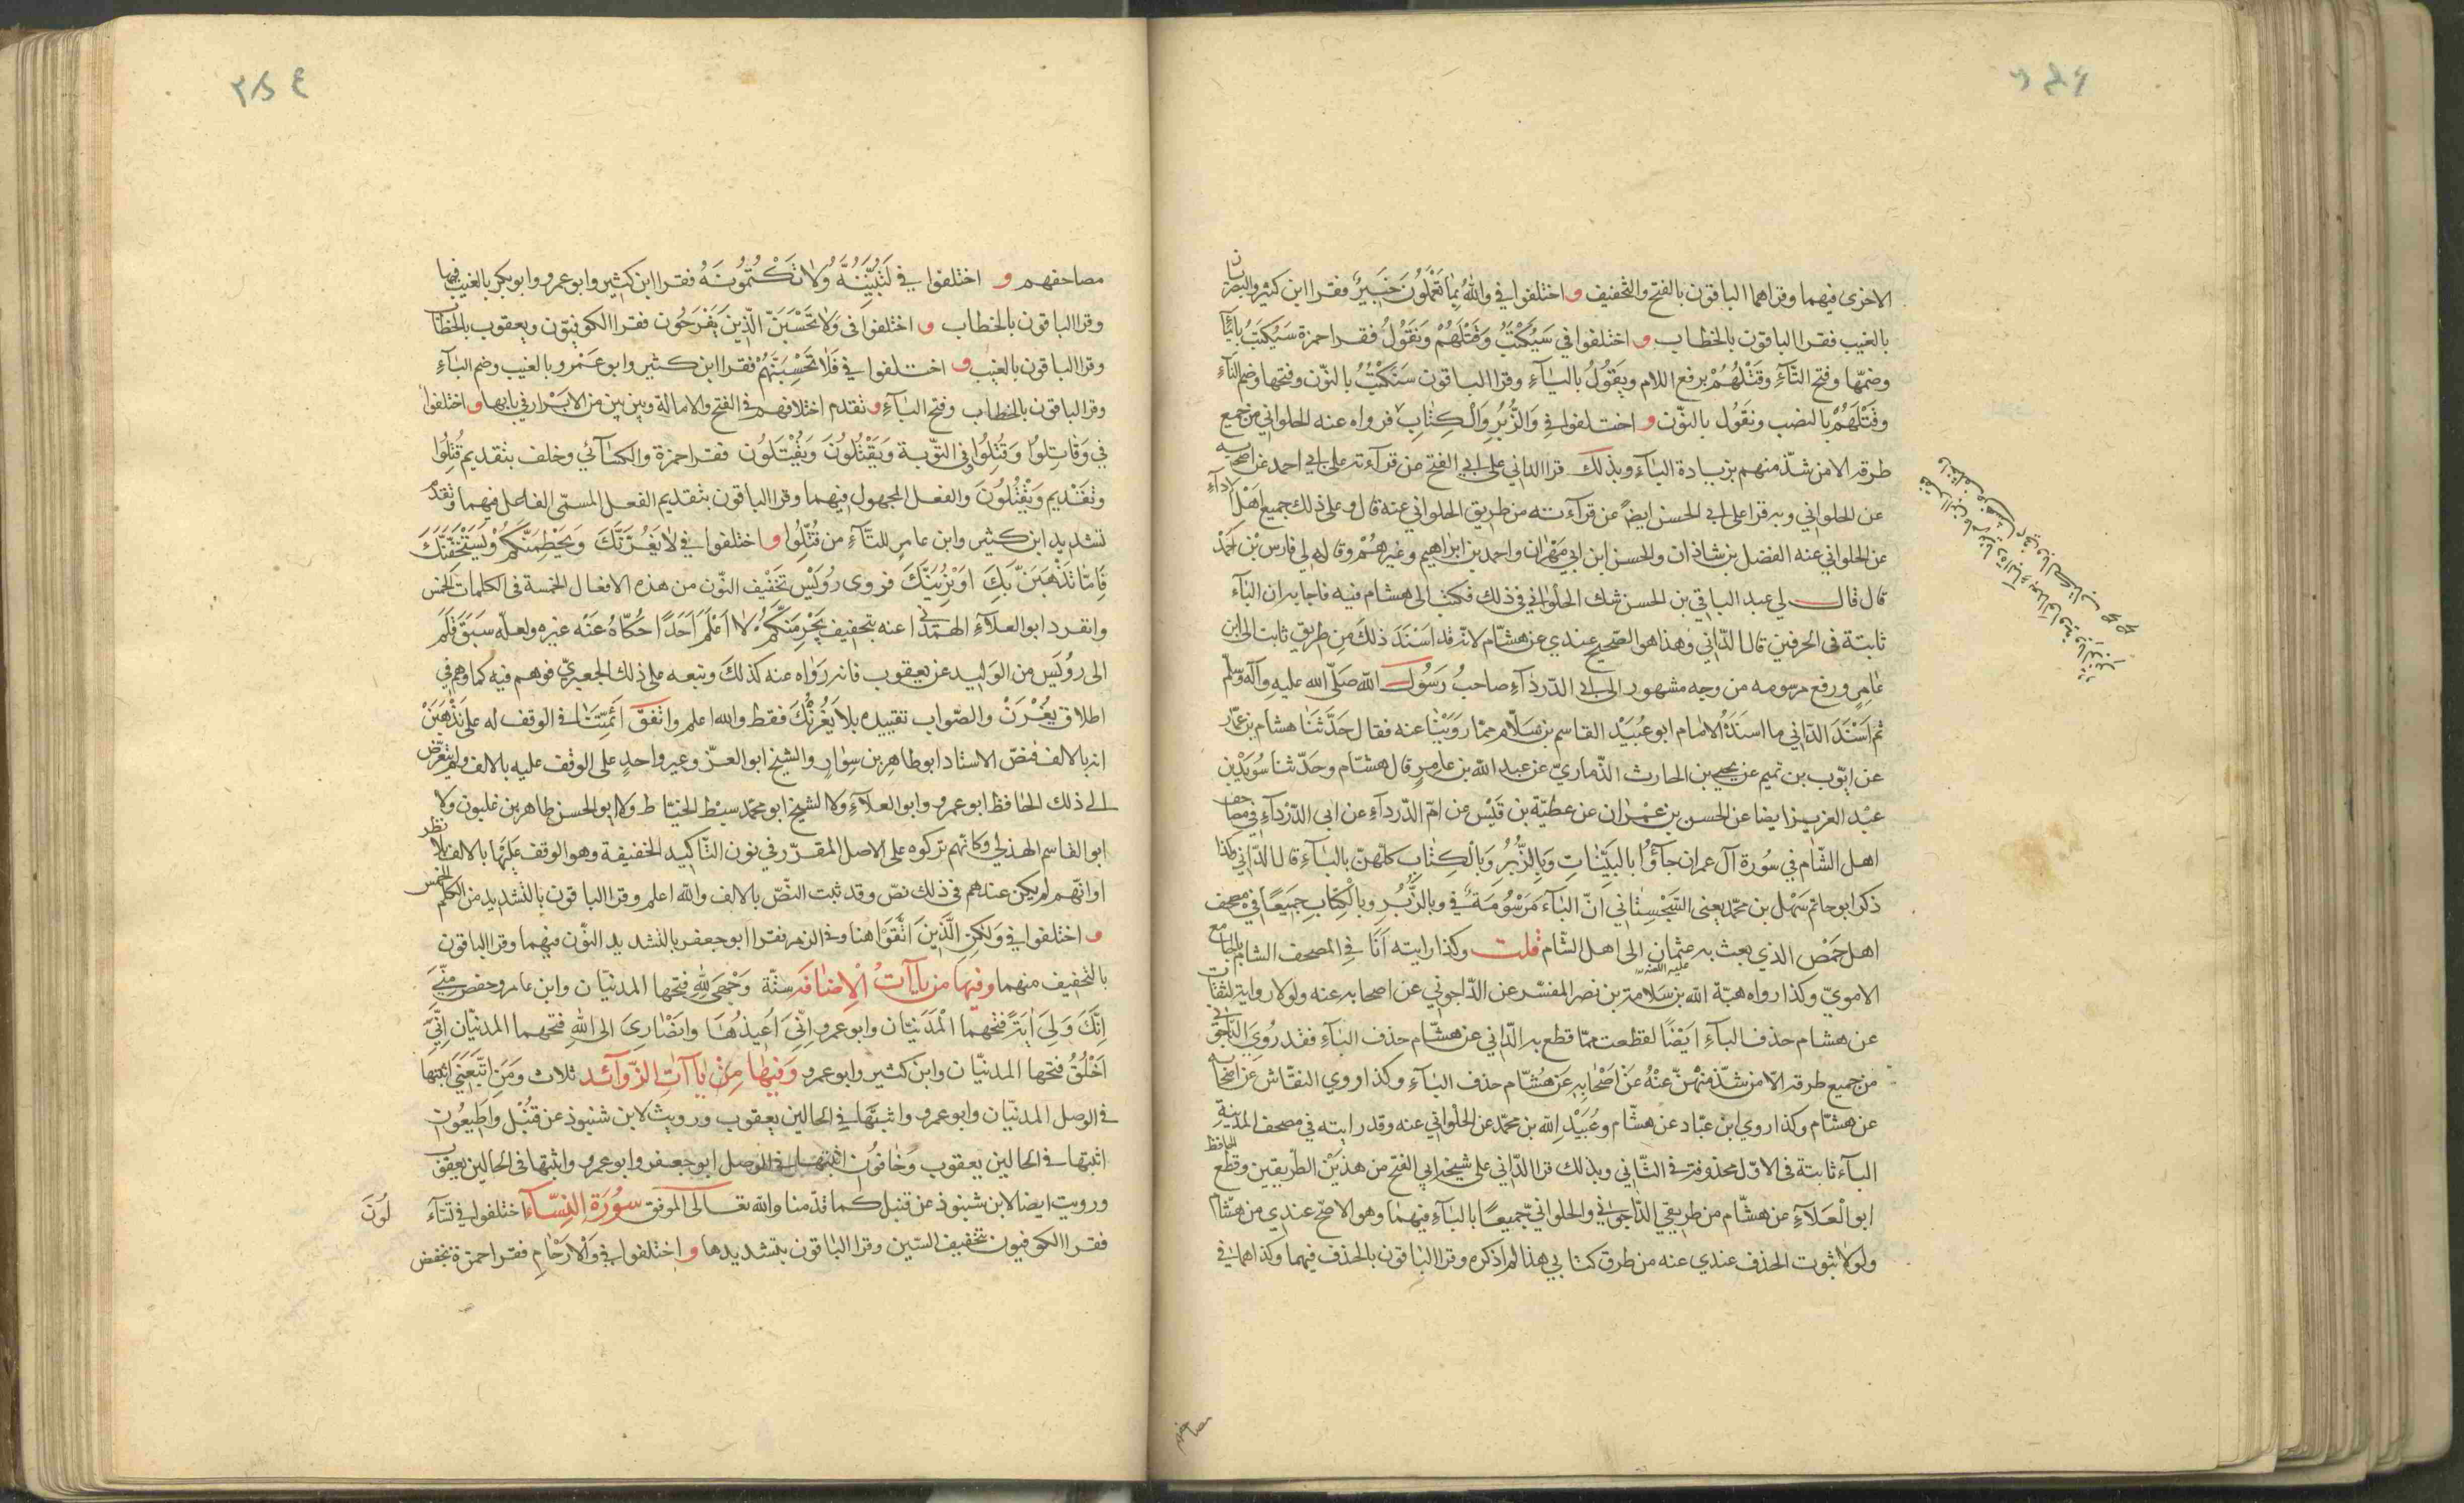 الاخرى فيهما وقراهما الباقون بالفتح والتخفيف و اختلفوا في والله بما تعملون خبير فقرا ابن كثير والبصريان
بالغيب فقرا الباقون بالخطاب و اختلفوا في سَيُكْتَبُ وَقَتْلَهُمْ وَنَقُولُ فقرا حمزة سَيُكتَبُ بالياء
وضمّها وفتح التّآءِ وقَتْلُهُمْ برفع اللام ويَقُولُ باليآءِ وقرا الباقون سَنَكْتُبُ بالنّون وفتحها وضم التآءِ
وقَتْلَهُمْ بالنصب ونقول بالنّون و اختلفوا في وَالزُّبُرِ وَالْكِتٰابِ فرواه عنه الحلواني من جميع
طرقه الا من شذّ منهم بزيادة البآء وبذلك قرا الداني على ابي الفتح عن قرآءته على ابي احمد عن اصحابه
عن الحلواني وبه قرا على ابي الحسن ايضاً عن قرآءته من طريق الحلواني عنه قال وعلى ذلك جميع اهل الاداءِ
عن الحلواني عنه الفضل بن شاذان والحسن ابن ابي مهران واحمد بن ابراهيم وغيرهم وقال لي فارس بن احمد
قال قال لي عبد الباقي بن الحسن شك الحلواني في ذلك فكتب الى هشام فيه فاجابه ان البآء
ثابتة في الحرفين قال الدّاني وهذا هو الصّحيح عندي عن هشام لانّه قد اَسْنَدَ ذلك من طريق ثابت الى ابن
عامر ورفع مرسومه من وجه مشهور الى ابي الدّردآءِ صاحب رسول الله صلّى الله عليه وآله وسلّم
ثم اَسْنَدَ الدّاني ما اسنده الامام ابو عبيد القاسم بن سلّام ممّا رويناه عنه فقال حدّثنا هشام بن عمّار
عن ايّوب بن تميم عن يحيى بن الحارث الذّماريّ عن عبد الله بن عامر قال هشام وحدّثنا سويد بن
عبد العزيز ايضا عن الحسن بن عمران عن عطيّة بن قيس عن امّ الدّردآءِ عن ابي الدّردآءِ في مصاحف
اهل الشام في سورة آل عمران جآؤُا بالبيّنات وبالزّبر وبالكتاب كلّهنّ بالبآءِ قال الدّاني وكذا
ذكر ابو حاتم سهل بن محمّد يعني السّجستاني انّ البآء مرسومة في وبالزّبر وبالكتاب جميعاً في مصحف
اهل حمص الذي بعث به عثمان الى اهل الشام قلت وكذا رايته انا في المصحف الشامي بالجامع
الامويّ وكذا رواه هبة الله بن سلامة بن نصر المفسّر عن الدّاجوني عن اصحابه عنه ولولا رواية الثقات
عن هشام حذف البآءِ ايضاً لقطعت ممّا قطع به الدّاني عن هشّام حذف البآءِ فقد روى الدّاجوني
من جميع طرقه الّا من شذّ منهم عنه عن اصحابه عن هشّام حذف البآءِ وكذا روي النقّاش عن اصحابه
عن هشّام وكذا روي ابن عبّاد عن هشّام وعبيد الله بن محمّد عن الحلواني عنه وقد رايته في مصحف المدينة
البآء ثابتة في الاوّل محذوفة في الثّاني وبذلك قرا الدّاني على شيخه ابي الفتح من هذين الطريقين وقطع الحافظ
ابو العلآءِ عن هشّام من طريقي الدّاجوني والحلواني جميعاً بالبآءِ فيهما وهو الاصح عندي من هشّام
ولولا ثبوت الحذف عندي عنه من طرق كتابي هذا لم اذكره وقرا الباقون بالحذف فيهما وكذا هما في
مصاحفهم و اختلفوا في لَتُبَيِّنُنَّهُ وَلٰا تَكْتُمُونَهُ فقرا ابن كثير وابو عمرو وابو بكر بالغيب فيهما
وقرا الباقون بالخطاب و اختلفوا في وَلا تَحْسَبَنَّ الّذينَ يَفْرَحُون فقرا الكوفيّون ويعقوب بالخطاب
وقرا الباقون بالغيب و اختلفوا في فَلا تَحْسِبَنَّهُمْ فقرا ابن كثير وابو عمرو بالغيب وضم البآءِ
وقرا الباقون بالخطاب وفتح البآءِ و تقدم اختلافهم في الفتح والامالة وبين بين من الابرار في بابها و اختلفوا
في وَقَاتِلُوا وَقُتِلُوا وفي التّوبة وَيَقْتُلُونَ وَيُقْتَلُون فقرا حمزة والكسآئي وخلف بتقديم قُتِلُوا
وتقديم وَيُقْتَلُونَ والفعل المجهول فيهما وقرا الباقون بتقديم الفعل المسمّى الفاعل فيهما وتقدّم
تشديد ابن كثير وابن عامر للتّآءِ من قُتّلُوا و اختلفوا في لا يَغُرَّنَّكَ ويَحْطِمَنَّكُمْ ويَسْتَخِفَّنَّكَ
فَامّا نَذْهَبَنَّ بِكَ اَوْ نُرِيَنَّكَ فروى رُوَيْس تَخْفيف النّون من هذه الافعال الخمسة في الكلمات الخمس
وانفرد ابو العلآءِ الهمداني عنه بتخفيف يَجْرِمَنَّكُمْ لا اَعْلَمُ اَحَداً حَكاهُ عَنْه غيره ولعلّه سَبَق قَلَم
الى رُوَيس من الوليد عن يعقوب فانّه رواه عنه كذلك وتبعه على ذلك الجعبريّ فوهم فيه كما وهم في
اطلاق يَغُرَّنْ والصّواب تقييده بلا يَغُرَّنْكَ فقط والله اعلم واتّفق ائمّتنا في الوقف له على نَذْهَبَنْ
انه بالالف فنصّ الاستاد ابو طاهر بن سوار والشيخ ابو العزّ وغير واحد على الوقف عليه بالالف ولم يتعرّض
الى ذلك الحافظ ابو عمرو وابو العلآءِ ولا الشيخ ابو محمّد سبط الخيّاط ولا ابو الحسن طاهر بن غلبون ولا
ابو القاسم الهذلي وكانّهم تركوه على الاصل المقرّر في نون التّاكيد الخفيفة وهو الوقف عليها بالالف بلا نظر
او انّهم لم يكن عندهم في ذلك نصّ وقد ثبت النصّ بالالف والله اعلم وقرا الباقون بالتّشديد من الكلم الخمس
و اختلفوا في وَلكِنِ الَّذينَ اتَّقَوْا هنا وفي الزمر فقرا ابو جعفر بالتّشديد النّون فيهما وقرا الباقون
بالتّخفيف منهما وفيها من ياآتُ الْاِضٰافَة ستّة وَجْهِيَ لِلّهِ فتحها المدنيّان وابن عامر وحفص مِنّيَ
اِنَّكَ وَلِيَ آيَةً فتحهما الْمَدَنيّان وابو عمرو اِنّيَ اُعيذُهَا وانصَارِيَ الى الله فتحهما المدنيّان اِنّيَ
اَخْلُقُ فتحها المدنيّان وابن كثير وابو عمرو وَفيهَا مِنْ يٰاآتِ الزّوآئد ثلاث ومَنِ اتّبَعَنِي اثبتها
في الوصل المدنيّان وابو عمرو واثبتها في الحالين يعقوب ورويت لابن شنبوذ عن قنبل وَاَطيعُونِ
اثبتها في الحالين يعقوب وَخَافُونِ اثبتها في الوصل ابو جعفر وابو عمرو واثبتها في الحالين يعقوب
ورويت ايضا لابن شنبوذ عن قنبل كما قدّمنا والله تعالى الموفق سورة النّسآء اختلفوا في تَسّآءَلُونَ
فقرا الكوفيون بتخفيف السّين وقرا الباقون بتشديدها و اختلفوا في وَالْارْحٰامِ فقرا حمزة بخفض